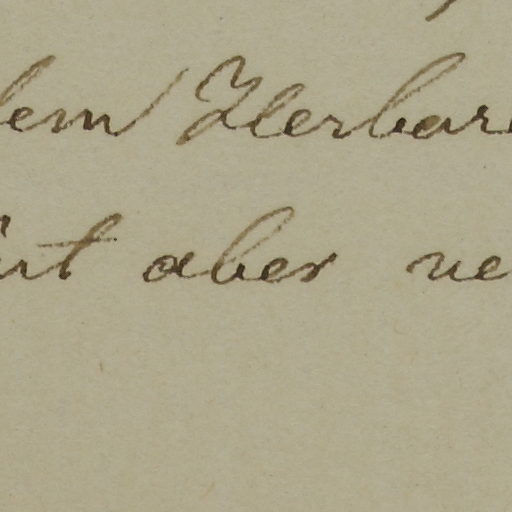 dem Herbar
rt aber ne